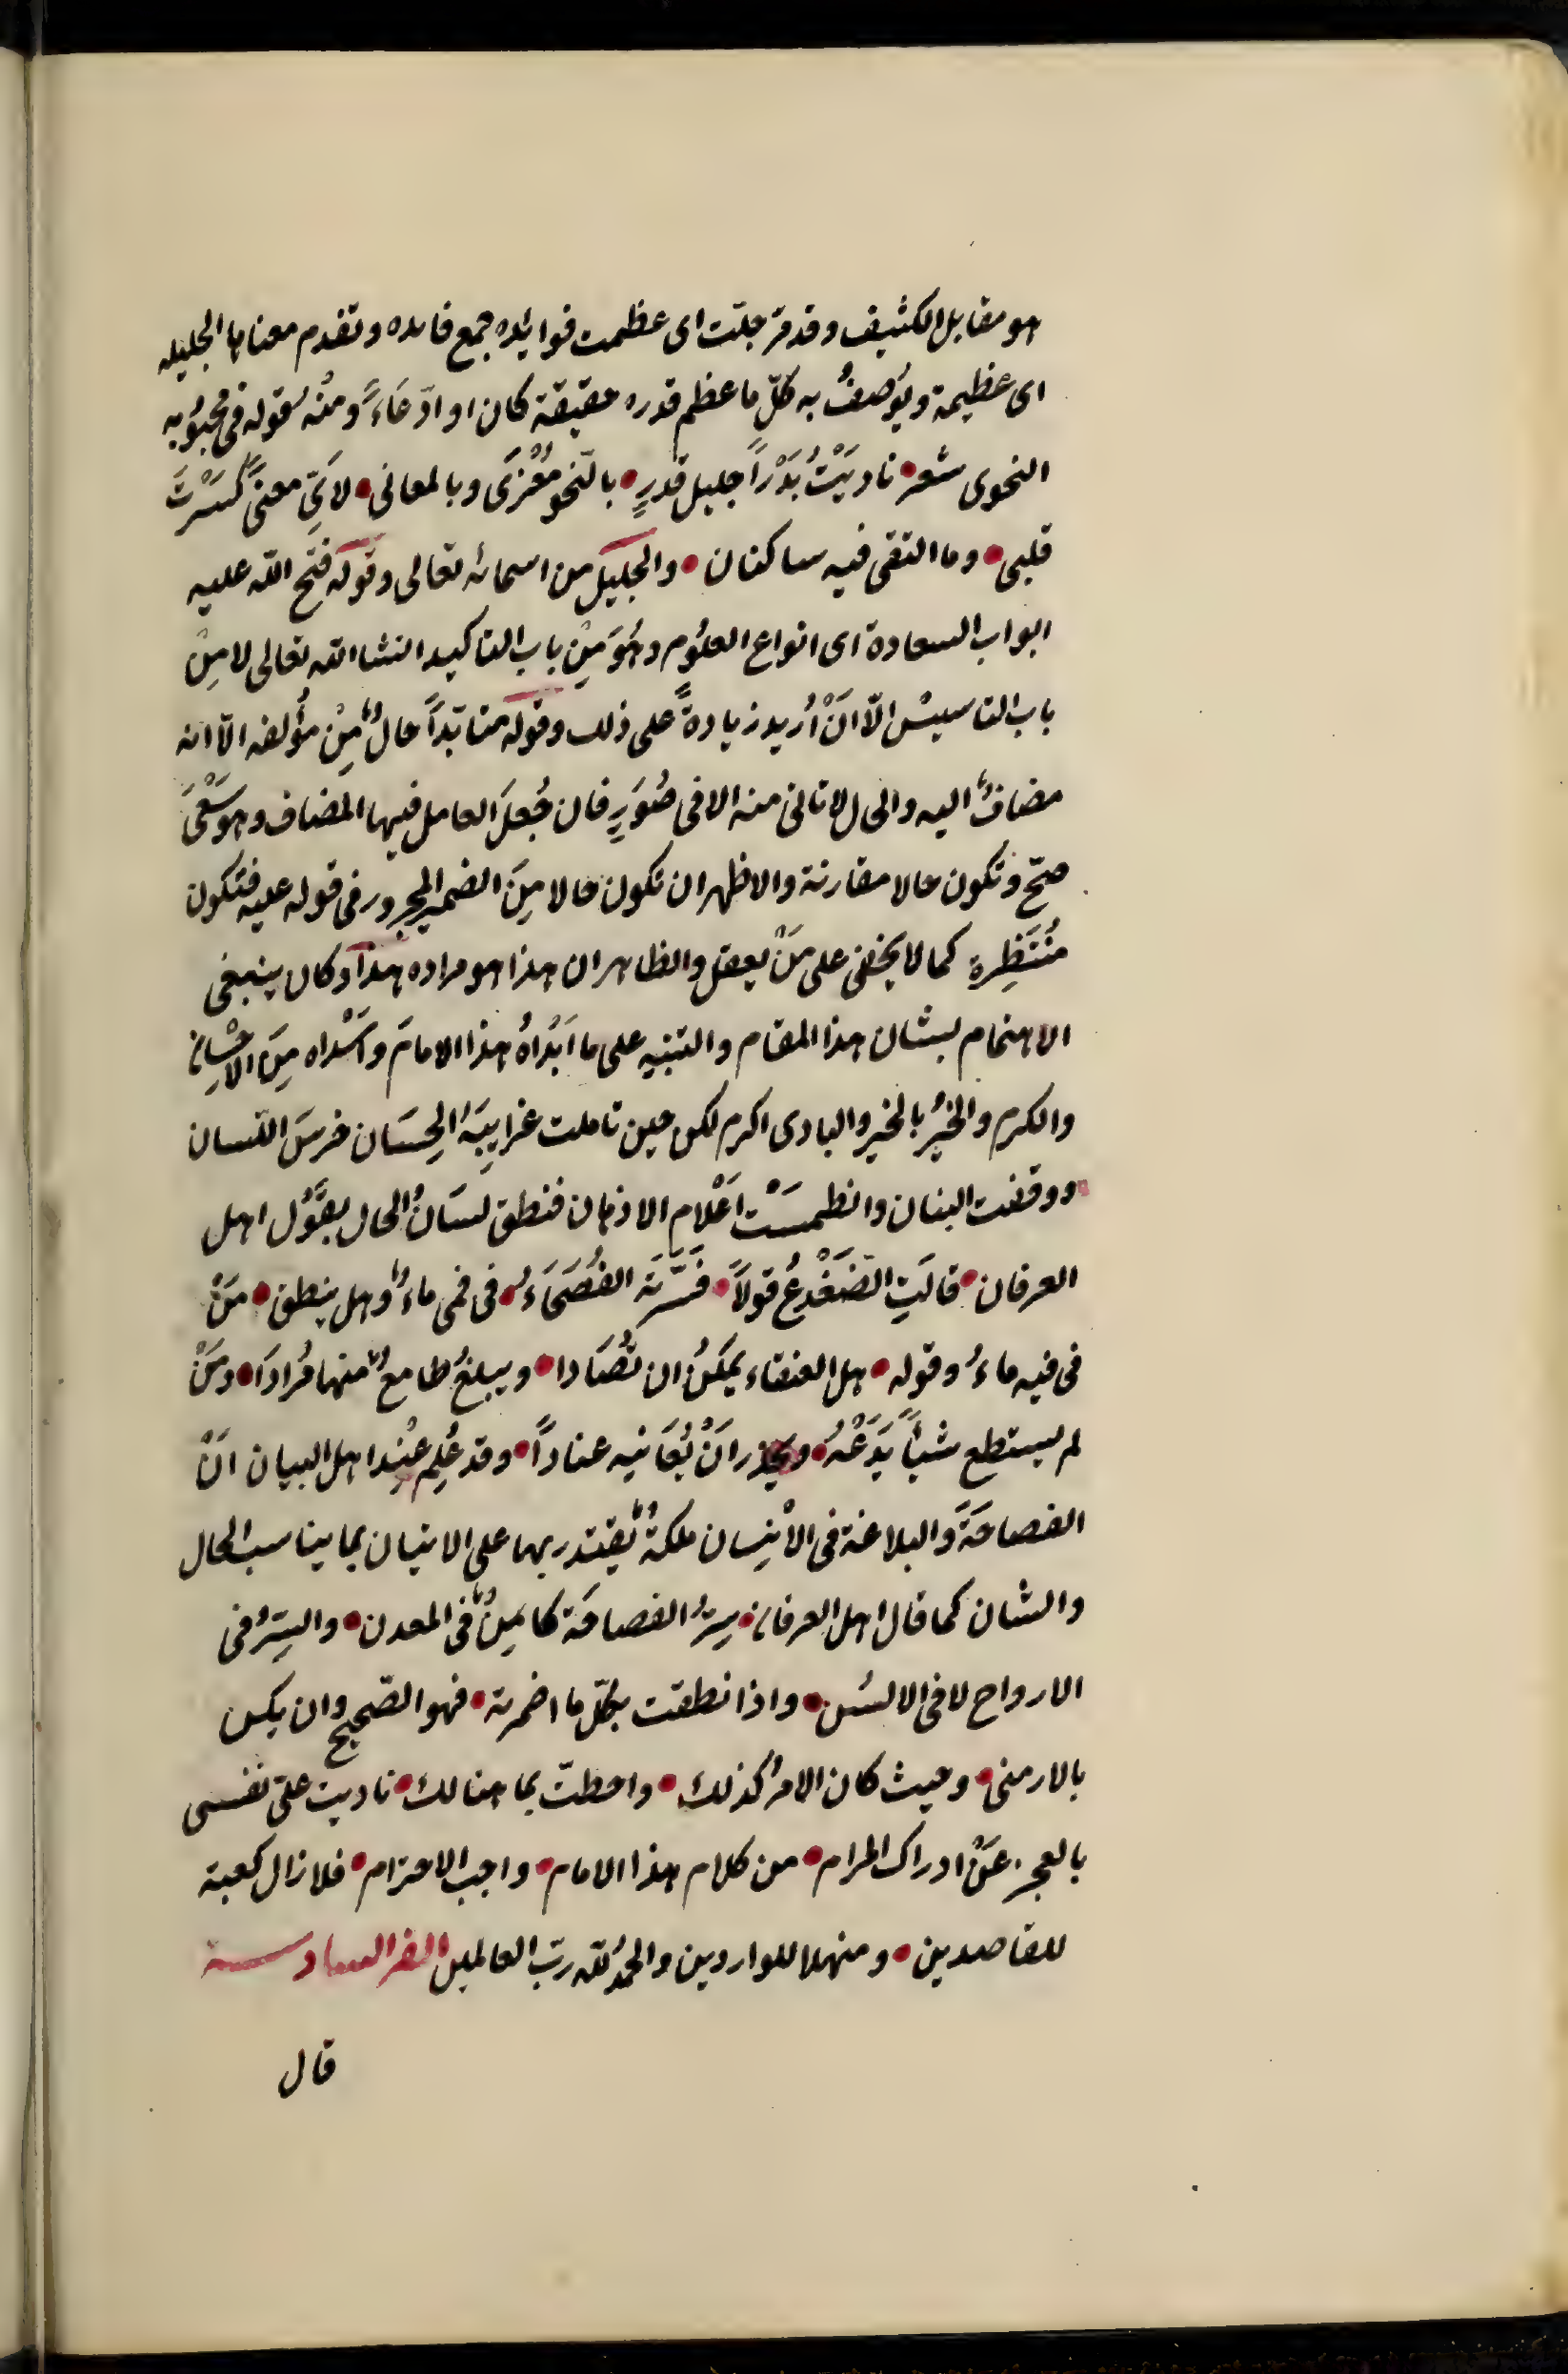 هو مقابل الكثيف وقد مرّ جلّت اى عظمت فوائده جمع فائده وتقدم معناها الجليله
اى عظيمة ويُوصفُ به كلّ ما عظم قدره حقيقة كان او ادّعَاءً ومنْه قوله فى محبُوبه
النحوى شعر• ناديْتُ بَدْرًا جليل قدرٍ• بالنّحو مُغْزَى وبالمعانى• لاىّ معنىً كسَرْتَ
قلبى• وما التقى فيه ساكنان• والجليل من اسمائه تعالى وقوله فتح الله عليه
ابواب السعادة اى انواع العلُوم وهُوَ مِنْ باب التاكيد انشا الله تعالى لا مِنْ
باب التاسيسْ الّا انْ اُريد زيادةً على ذلك وقوله متابّدًا حالٌ مِنْ مؤلفه الّا انه
مضافٌ اليه والحال لا تاتى منه الا فى صُوَرٍ فان جُعلَ العامل فيها المضاف وهو
صحّ وتكون حالا مقارنة والاظهر ان تكون حالا مِنَ الضمير المجرور فى قوله عليه فتكون
مُنْتَظِرة كما لا يخفى على مَنْ يعقل والظاهر ان هذا هو مراده هذا وكان ينبغى
الاهتمام بشان هذا المقام والتنبيه على ما اَبْدَاهُ هذا الامامَ واَسْداه مِنَ الاحْسان
والكرم والخيْرُ بالخير والبادى اكرم لكن حين تاملت غرايبَهُ الحِسَان خرسَ اللسان
ووقفت البنان وانطمسَتْ اَعْلام الاذهان فنطق لسَانُ الحال بقوْل اهل
العرفان• قالَتِ الضّفْدعُ قولاً• فَسَّرَتَه الفُصَحَاءُ• فى فمى ماءٌ وهل ينطق• مَنْ
فى فيه ماءُ وقوله• هل العنقاء يمكنُ ان تُصَادا• ويبلغُ طامعٌ منها مُرادَا• ومَنْ
لم يستطع شيأً يَدَعْهُ• ويحذر انْ يُعَانيه عنادًا• وقد عُلِم عنْد اهل البيان انّ
الفصاحَةَ والبلاغة فى الانسان ملكةٌ يقتدر بها على الاتيان بما يناسب الحال
والشان كما قال اهل العرفان• سِرُّ الفصاحَة كامِنٌ فى المعدن• والسِرُّ فى
الارواح لا فى الالسُن• واذا نطقت بكلّ ما اضمرته• فهو الصّحيح وان يكن
بالارمنى• وحيث كان الامرُ كذلك• واحطتّ بما هنالك• ناديت على نفسى
بالعجز عَنْ ادراك المرام• من كلام هذا الامام• واجب الاحترام• فلا زال كعبة
للقاصدين• ومنهلا للواردين والحمدُ لله ربّ العالمين السادسة
قال